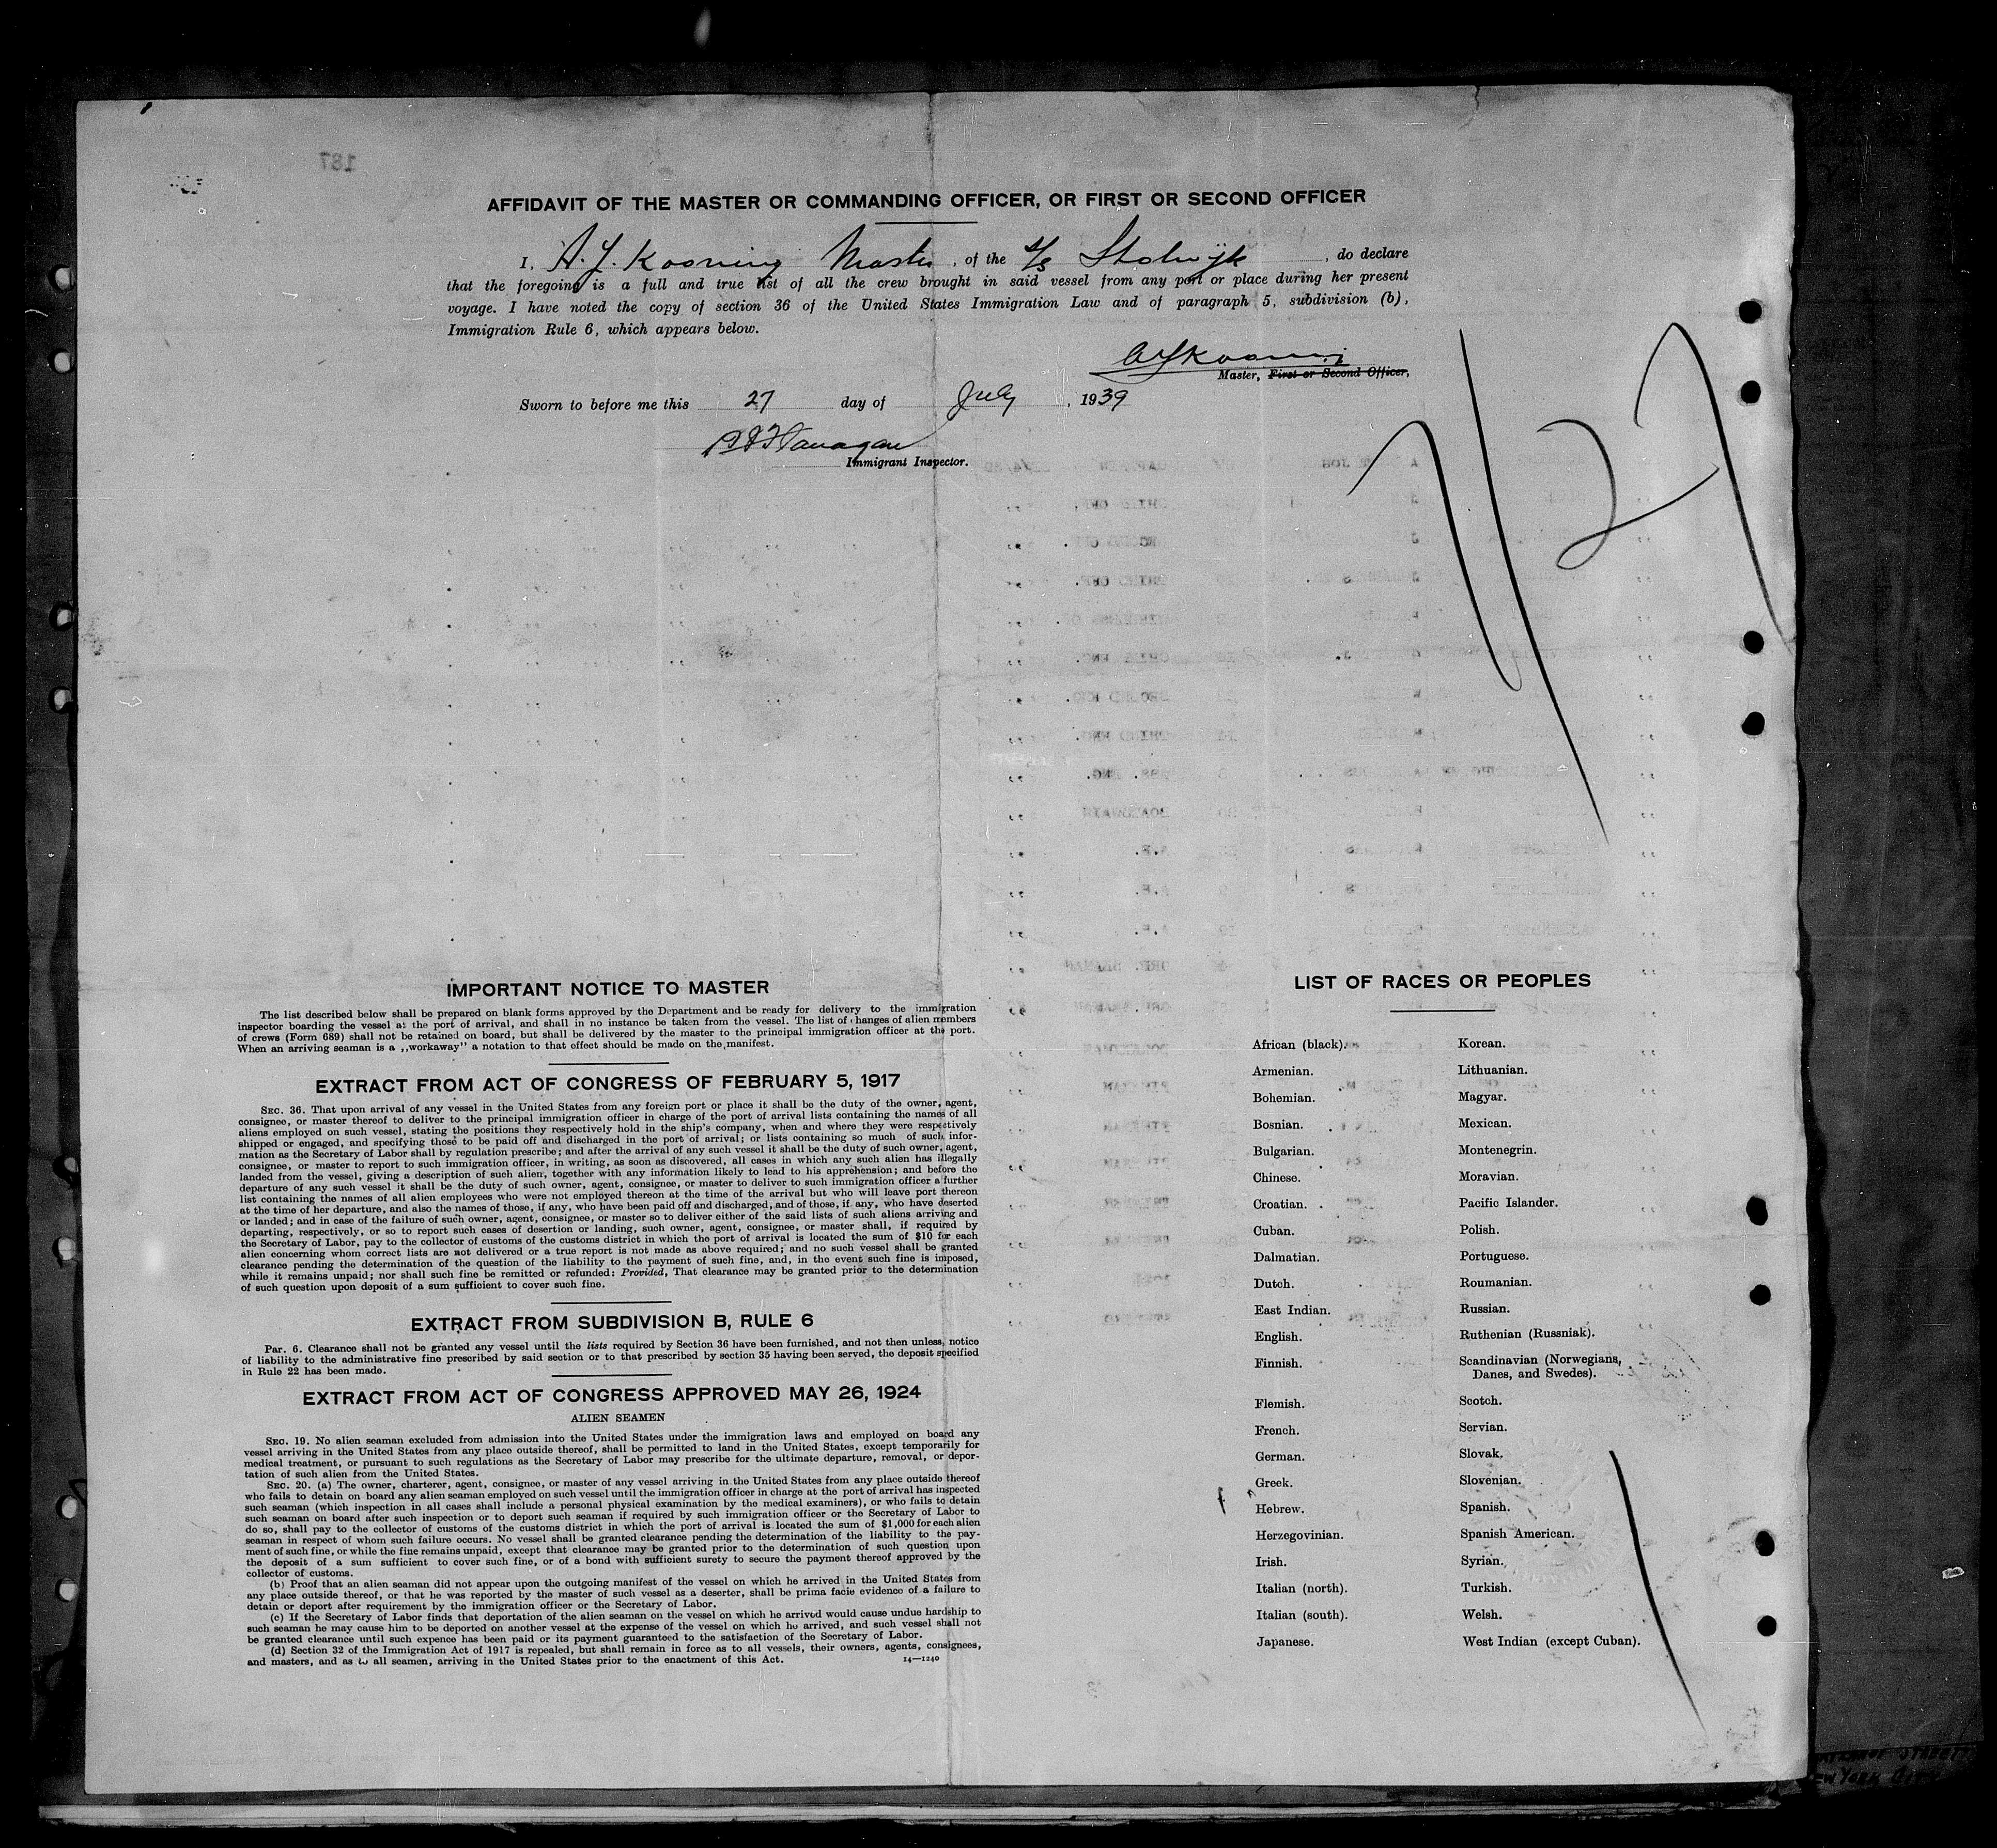 187
AFFIDAVIT OF THE MASTER OR COMMANDING OFFICER, OR FIRST OR SECOND OFFICER
I, A. J. Kooning Master, of the s/s Stolwijk, do declare
that the foregoing is a full and true list of all the crew brought in said vessel from any port or place during her present
voyage. I have noted the copy of section 36 of the United States Immigration Law and of paragraph 5, subdivision (b),
Immigration Rule 6, which appears below.
Master, First or Second Officer,
Sworn to before me this 27 day of July, 1939
Flanagan
Immigrant Inspector.
7/27
IMPORTANT NOTICE TO MASTER
The list described below shall be prepared on blank forms approved by the Department and be ready for delivery to the immigration
inspector boarding the vessel at the port of arrival, and shall in no instance be taken from the vessel. The list of changes of alien members
of crews (Form 689) shall not be retained on board, but shall be delivered by the master to the principal immigration officer at the port.
When an arriving seaman is a ,,workaway" a notation to that effect should be made on the manifest.
EXTRACT FROM ACT OF CONGRESS OF FEBRUARY 5, 1917
SEC. 36. That upon arrival of any vessel in the United States from any foreign port or place it shall be the duty of the owner, agent,
consignee, or master thereof to deliver to the principal immigration officer in charge of the port of arrival lists containing the names of all
aliens employed on such vessel, stating the positions they respectively hold in the ship's company, when and where they were respectively
shipped or engaged, and specifying those to be paid off and discharged in the port of arrival; or lists containing so much of such infor-
mation as the Secretary of Labor shall by regulation prescribe; and after the arrival of any such vessel it shall be the duty of such owner, agent,
consignee, or master to report to such immigration officer, in writing, as soon as discovered, all cases in which any such alien has illegally
landed from the vessel, giving a description of such alien, together with any information likely to lead to his apprehension; and before the
departure of any such vessel it shall be the duty of such owner, agent, consignee, or master to deliver to such immigration officer a further
list containing the names of all alien employees who were not employed thereon at the time of the arrival but who will leave port thereon
at the time of her departure, and also the names of those, if any, who have been paid off and discharged, and of those, if any, who have deserted
or landed; and in case of the failure of such owner, agent, consignee, or master so to deliver either of the said lists of such aliens arriving and
departing, respectively, or so to report such cases of desertion or landing, such owner, agent, consignee, or master shall, if required by
the Secretary of Labor, pay to the collector of customs of the customs district in which the port of arrival is located the sum of $10 for each
alien concerning whom correct lists are not delivered or a true report is not made as above required; and no such vessel shall be granted
clearance pending the determination of the question of the liability to the payment of such fine, and, in the event such fine is imposed,
while it remains unpaid; nor shall such fine be remitted or refunded: Provided, That clearance may be granted prior to the determination
of such question upon deposit of a sum sufficient to cover such fine.
EXTRACT FROM SUBDIVISION B, RULE 6
Par. 6. Clearance shall not be granted any vessel until the lists required by Section 36 have been furnished, and not then unless, notice
of liability to the administrative fine prescribed by said section or to that prescribed by section 35 having been served, the deposit specified
in Rule 22 has been made.
EXTRACT FROM ACT OF CONGRESS APPROVED MAY 26, 1924
ALIEN SEAMEN
SEC. 19. No alien seaman excluded from admission into the United States under the immigration laws and employed on board any
vessel arriving in the United States from any place outside thereof, shall be permitted to land in the United States, except temporarily for
medical treatment, or pursuant to such regulations as the Secretary of Labor may prescribe for the ultimate departure, removal, or depor-
tation of such alien from the United States.
SEC. 20. (a) The owner, charterer, agent, consignee, or master of any vessel arriving in the United States from any place outside thereof
who fails to detain on board any alien seaman employed on such vessel until the immigration officer in charge at the port of arrival has inspected
such seaman (which inspection in all cases shall include a personal physical examination by the medical examiners), or who fails to detain
such seaman on board after such inspection or to deport such seaman if required by such immigration officer or the Secretary of Labor to
do so, shall pay to the collector of customs of the customs district in which the port of arrival is located the sum of $1,000 for each alien
seaman in respect of whom such failure occurs. No vessel shall be granted clearance pending the determination of the liability to the pay-
ment of such fine, or while the fine remains unpaid, except that clearance may be granted prior to the determination of such question upon
the deposit of a sum sufficient to cover such fine, or of a bond with sufficient surety to secure the payment thereof approved by the
collector of customs.
(b) Proof that an alien seaman did not appear upon the outgoing manifest of the vessel on which he arrived in the United States from
any place outside thereof, or that he was reported by the master of such vessel as a deserter, shall be prima facie evidence of a failure to
detain or deport after requirement by the immigration officer or the Secretary of Labor.
(c) If the Secretary of Labor finds that deportation of the alien seaman on the vessel on which he arrived would cause undue hardship to
such seaman he may cause him to be deported on another vessel at the expense of the vessel on which he arrived, and such vessel shall not
be granted clearance until such expence has been paid or its payment guaranteed to the satisfaction of the Secretary of Labor.
(d) Section 32 of the Immigration Act of 1917 is repealed, but shall remain in force as to all vessels, their owners, agents, consignees,
and masters, and as to all seamen, arriving in the United States prior to the enactment of this Act. 14—1240
LIST OF RACES OR PEOPLES
African (black). Korean.
Armenian. Lithuanian.
Bohemian. Magyar.
Bosnian. Mexican.
Bulgarian. Montenegrin.
Chinese. Moravian.
Croatian. Pacific Islander.
Cuban. Polish.
Dalmatian. Portuguese.
Dutch. Roumanian.
East Indian. Russian.
English. Ruthenian (Russniak).
Finnish. Scandinavian (Norwegians,
Danes, and Swedes).
Flemish. Scotch.
French. Servian.
German. Slovak.
Greek. Slovenian.
Hebrew. Spanish.
Herzegovinian. Spanish American.
Irish. Syrian.
Italian (north). Turkish.
Italian (south). Welsh.
Japanese. West Indian (except Cuban).